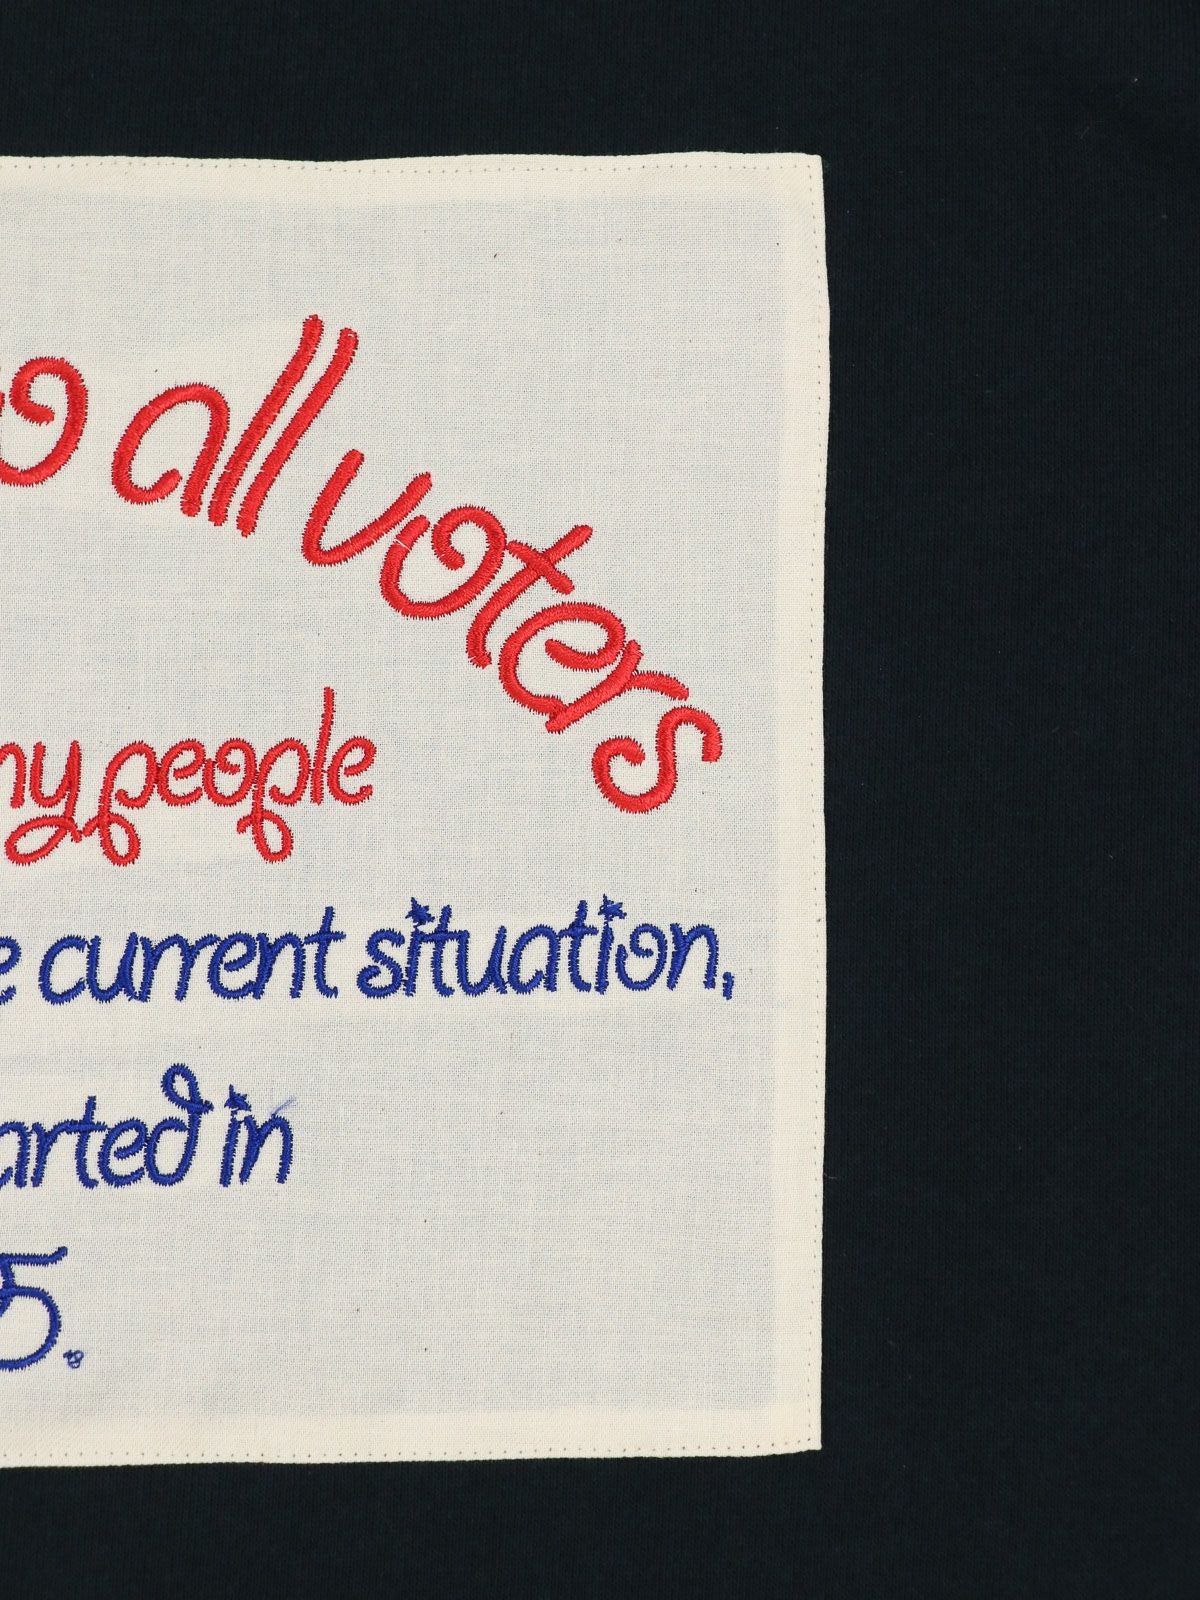 o all voters
ny people
e current situation,
arted in
5.